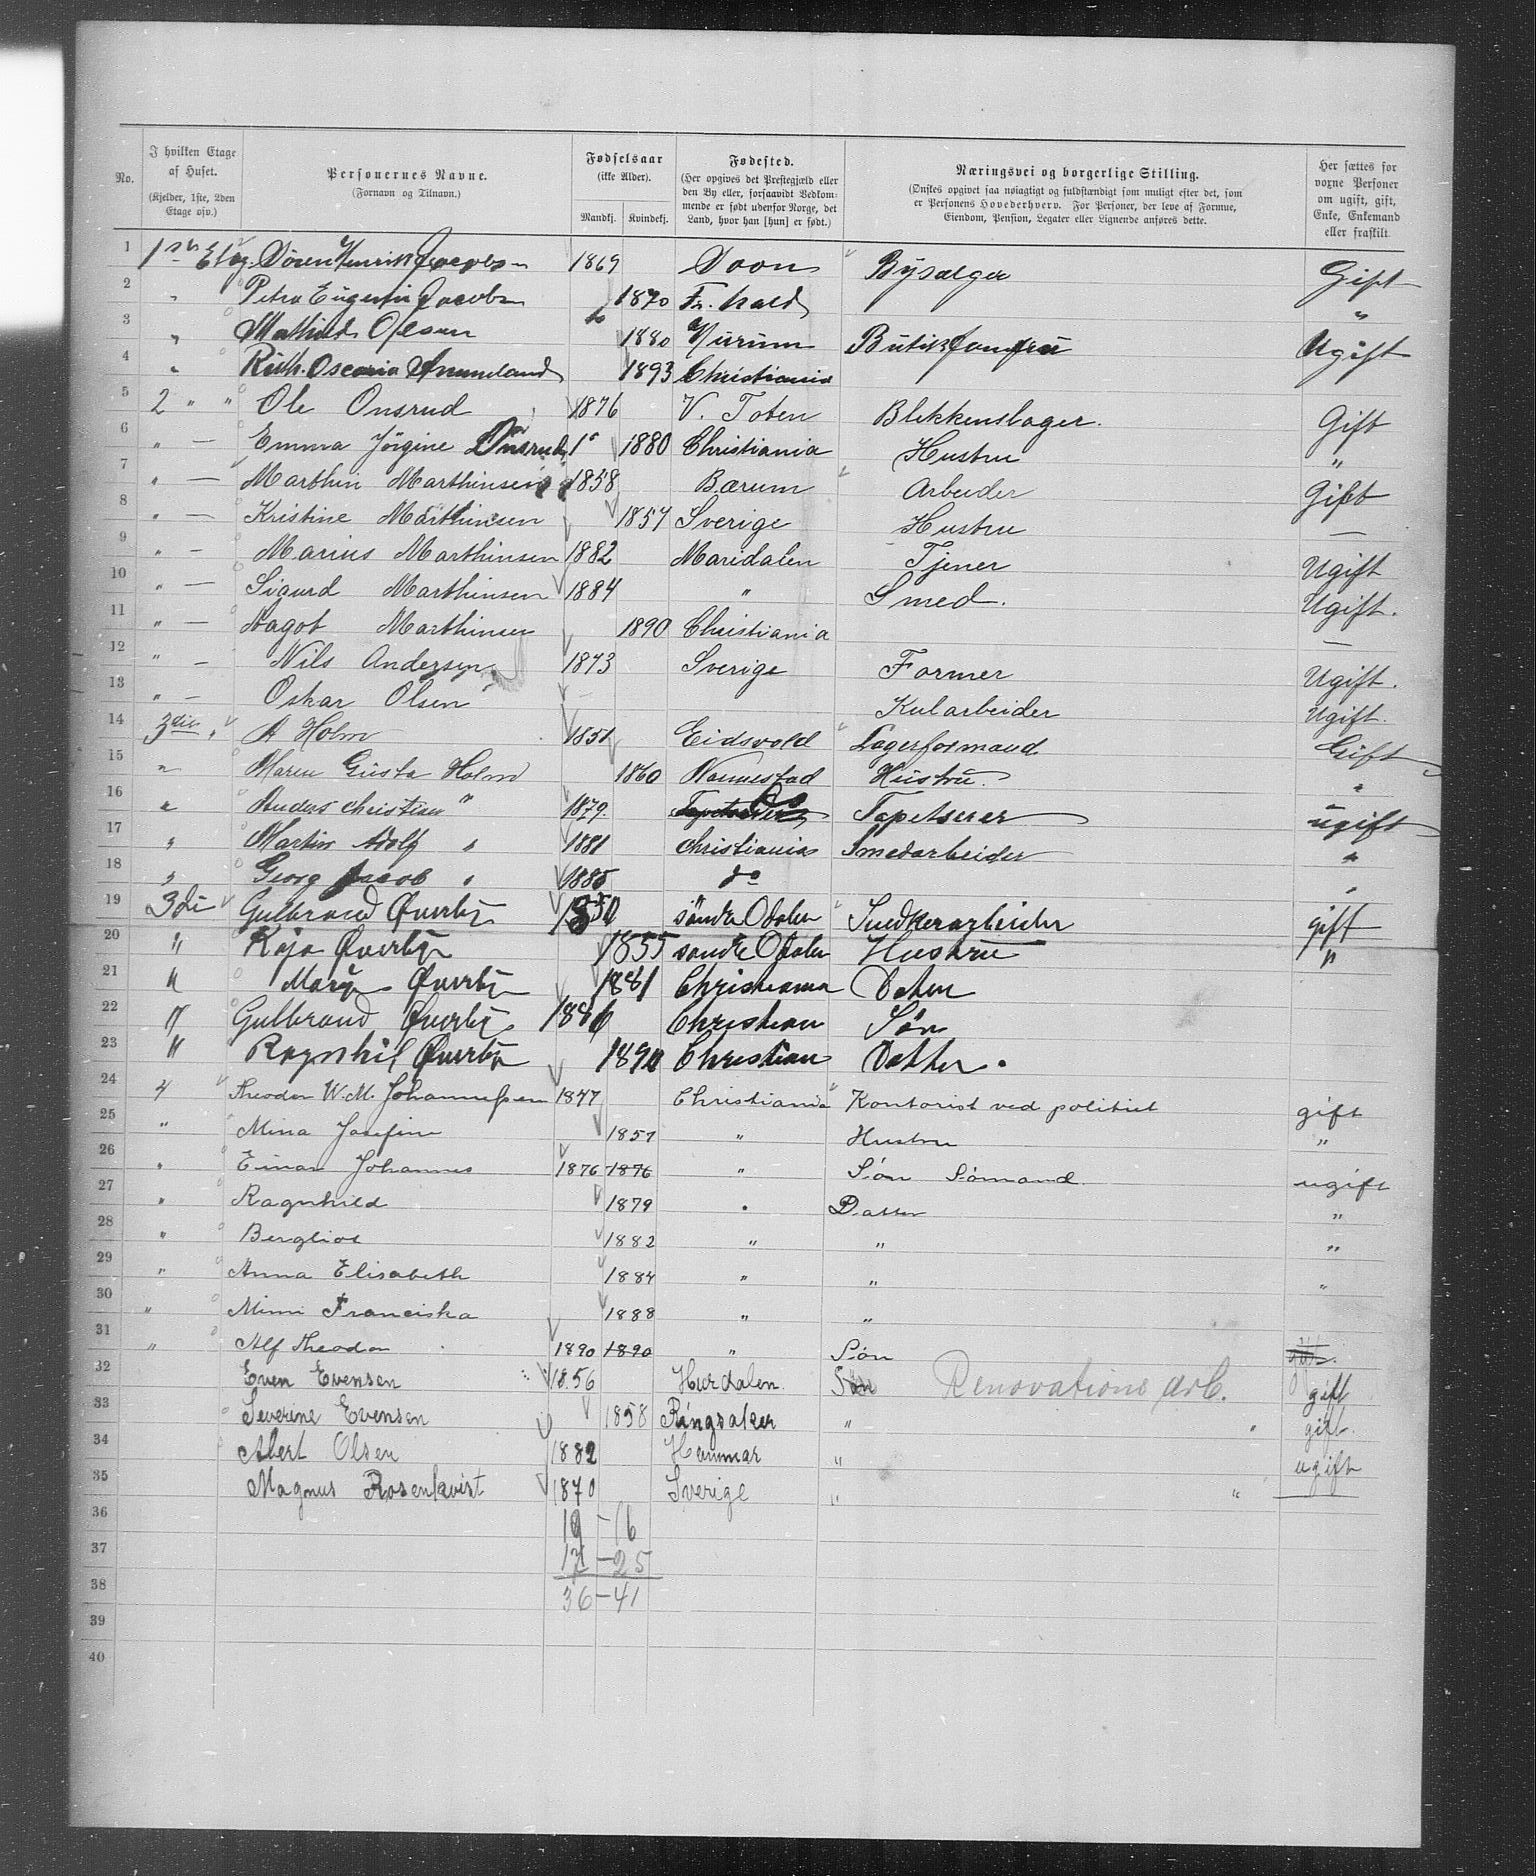 No. | I hvilken Etage af Huset. (Kjelder, 1ste, 2den Etage osv.) | Personernes Navne. (Fornavn og Tilnavn.) | Fødselsaar (ikke Alder). Mandkj. Kvindekj. | Fødested. (Her opgives det Prestegjæld eller den By eller, forsaavidt Vedkommende er født udenfor Norge, det Land, hvor han [hun] er født.) | Næringsvei og borgerlige Stilling. (Ønskes opgivet saa nøiagtigt og fuldstændigt som muligt efter det, som er Personens Hovederhverv. For Personer, der leve af Formue, Eiendom, Pension, Legater eller Lignende anføres dette. | Her sættes for voxne Personer om ugift, gift, Enke, Enkemand eller fraskilt.
1 1ste Etag. Søren Henrik Jacobsen 1869 Bysælger Gift
2 " Petra Eugenie Jacobsen 1870 Fr. hald "
3 " Mathilde Olsen 1880 Butikjomfru Ugift
4 " Ruth Oscaria 1893 Christiania
5 2 " " Ole Onsrud 1876 V. Toten Blikkenslager. Gift
6 " — Emma Jörgine Onsrud 1880 Christiania Hustru "
7 " — Marthin Marthinsen 1858 Bærum Arbeider Gift
8 " — Kristine Marthinsen 1857 Sverige Hustru —
9 " — Marius Marthinsen 1882 Maridalen Tjener Ugift
10 " — Sigurd Marthinsen 1884 " Smed. Ugift.
11 " — Aagot Marthinsen 1890 Christiania —
12 " — Nils Andersen 1873 Sverige Former Ugift.
13 " — Oskar Olsen — Kularbeider Ugift.
14 3die " A Holm 1851 Eidsvold Lagerformand Gift
15 " Maren Gusta Holm 1860 Nannestad Hustru. "
16 " Anders Christian " 1879. Do Tapetserer ugift
17 " Martin Adolf " 1881 Christiania Smedarbeider "
18 " Georg Jacob " 1885 do "
19 3die Gulbrand Øverby 1850 söndre Odalen Snedkerarbeider gift
20 " Kaja Øverby 1855 söndre Odalen Hustru "
21 " Mary Øverby 1881 Christiania Dater
22 " Gulbrand Øverby 1886 Christian Søn
23 " Ragnhil Øverby 1890 Christian Datter.
24 4 Theodor W. M. Johannessen 1847 Christiania Kontorist ved politiet gift
25 " Mina Josefine 1851 " Hustru "
26 " Einar Johannes 1876 1876 " Søn Sömand. ugift
27 " Ragnhild 1879 " Datter "
28 " Bergliot 1882 " " "
29 " Anna Elisabeth 1884 " " "
30 " Mimi Franciska 1888 " "
31 " Alf Theodor 1890 1890 " Søn
32 Even Evensen 1856 Hurdalen. Søn Renovations arb. gift
33 Severine Evensen 1858 Ringsaker " " gift.
34 Albert Olsen 1882 Hammar " ugift
35 Magnus Rosenkvist 1870 Sverige " " —
36 19 – 16
37 17 – 25
38 36 – 41
39
40